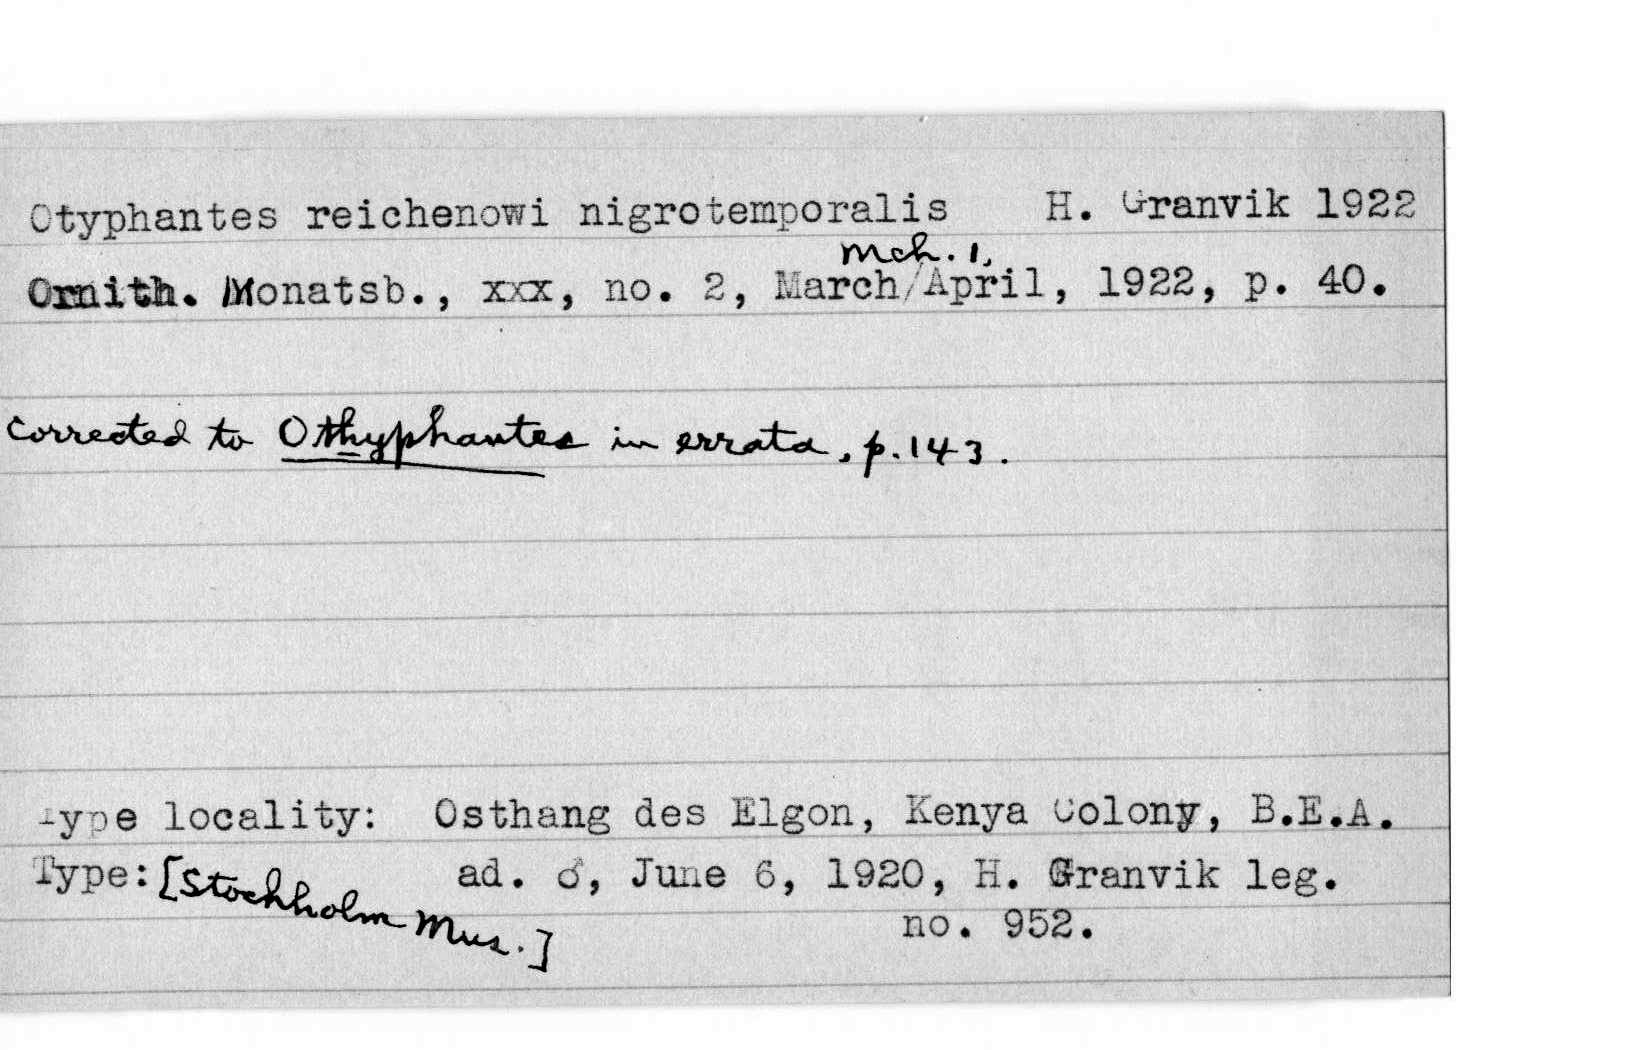 Otyphantes reichenowi nigrotemporalis H. Granvik 1922
Mch. 1,
Ornith. Monatsb., xxx, no. 2, March/April, 1922, p. 40.
Corrected to Othyphantes in errata, p. 143.
Type locality: Osthang des Elgon, Kenya Colony, B.E.A.
Type: [Stockholm Mus.] ad. ♂, June 6, 1920, H. Granvik leg.
no. 952.